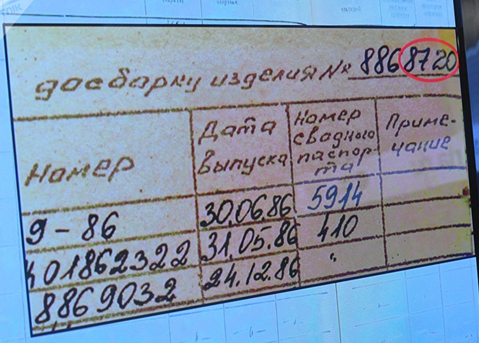 дасборку изделия № 8868720
Номер
Дата выпуска
Номер сводного паспорта
Примечание
9-86 30.06.86 5914
401862322 31.05.86 410
8869032 24.12.86 "